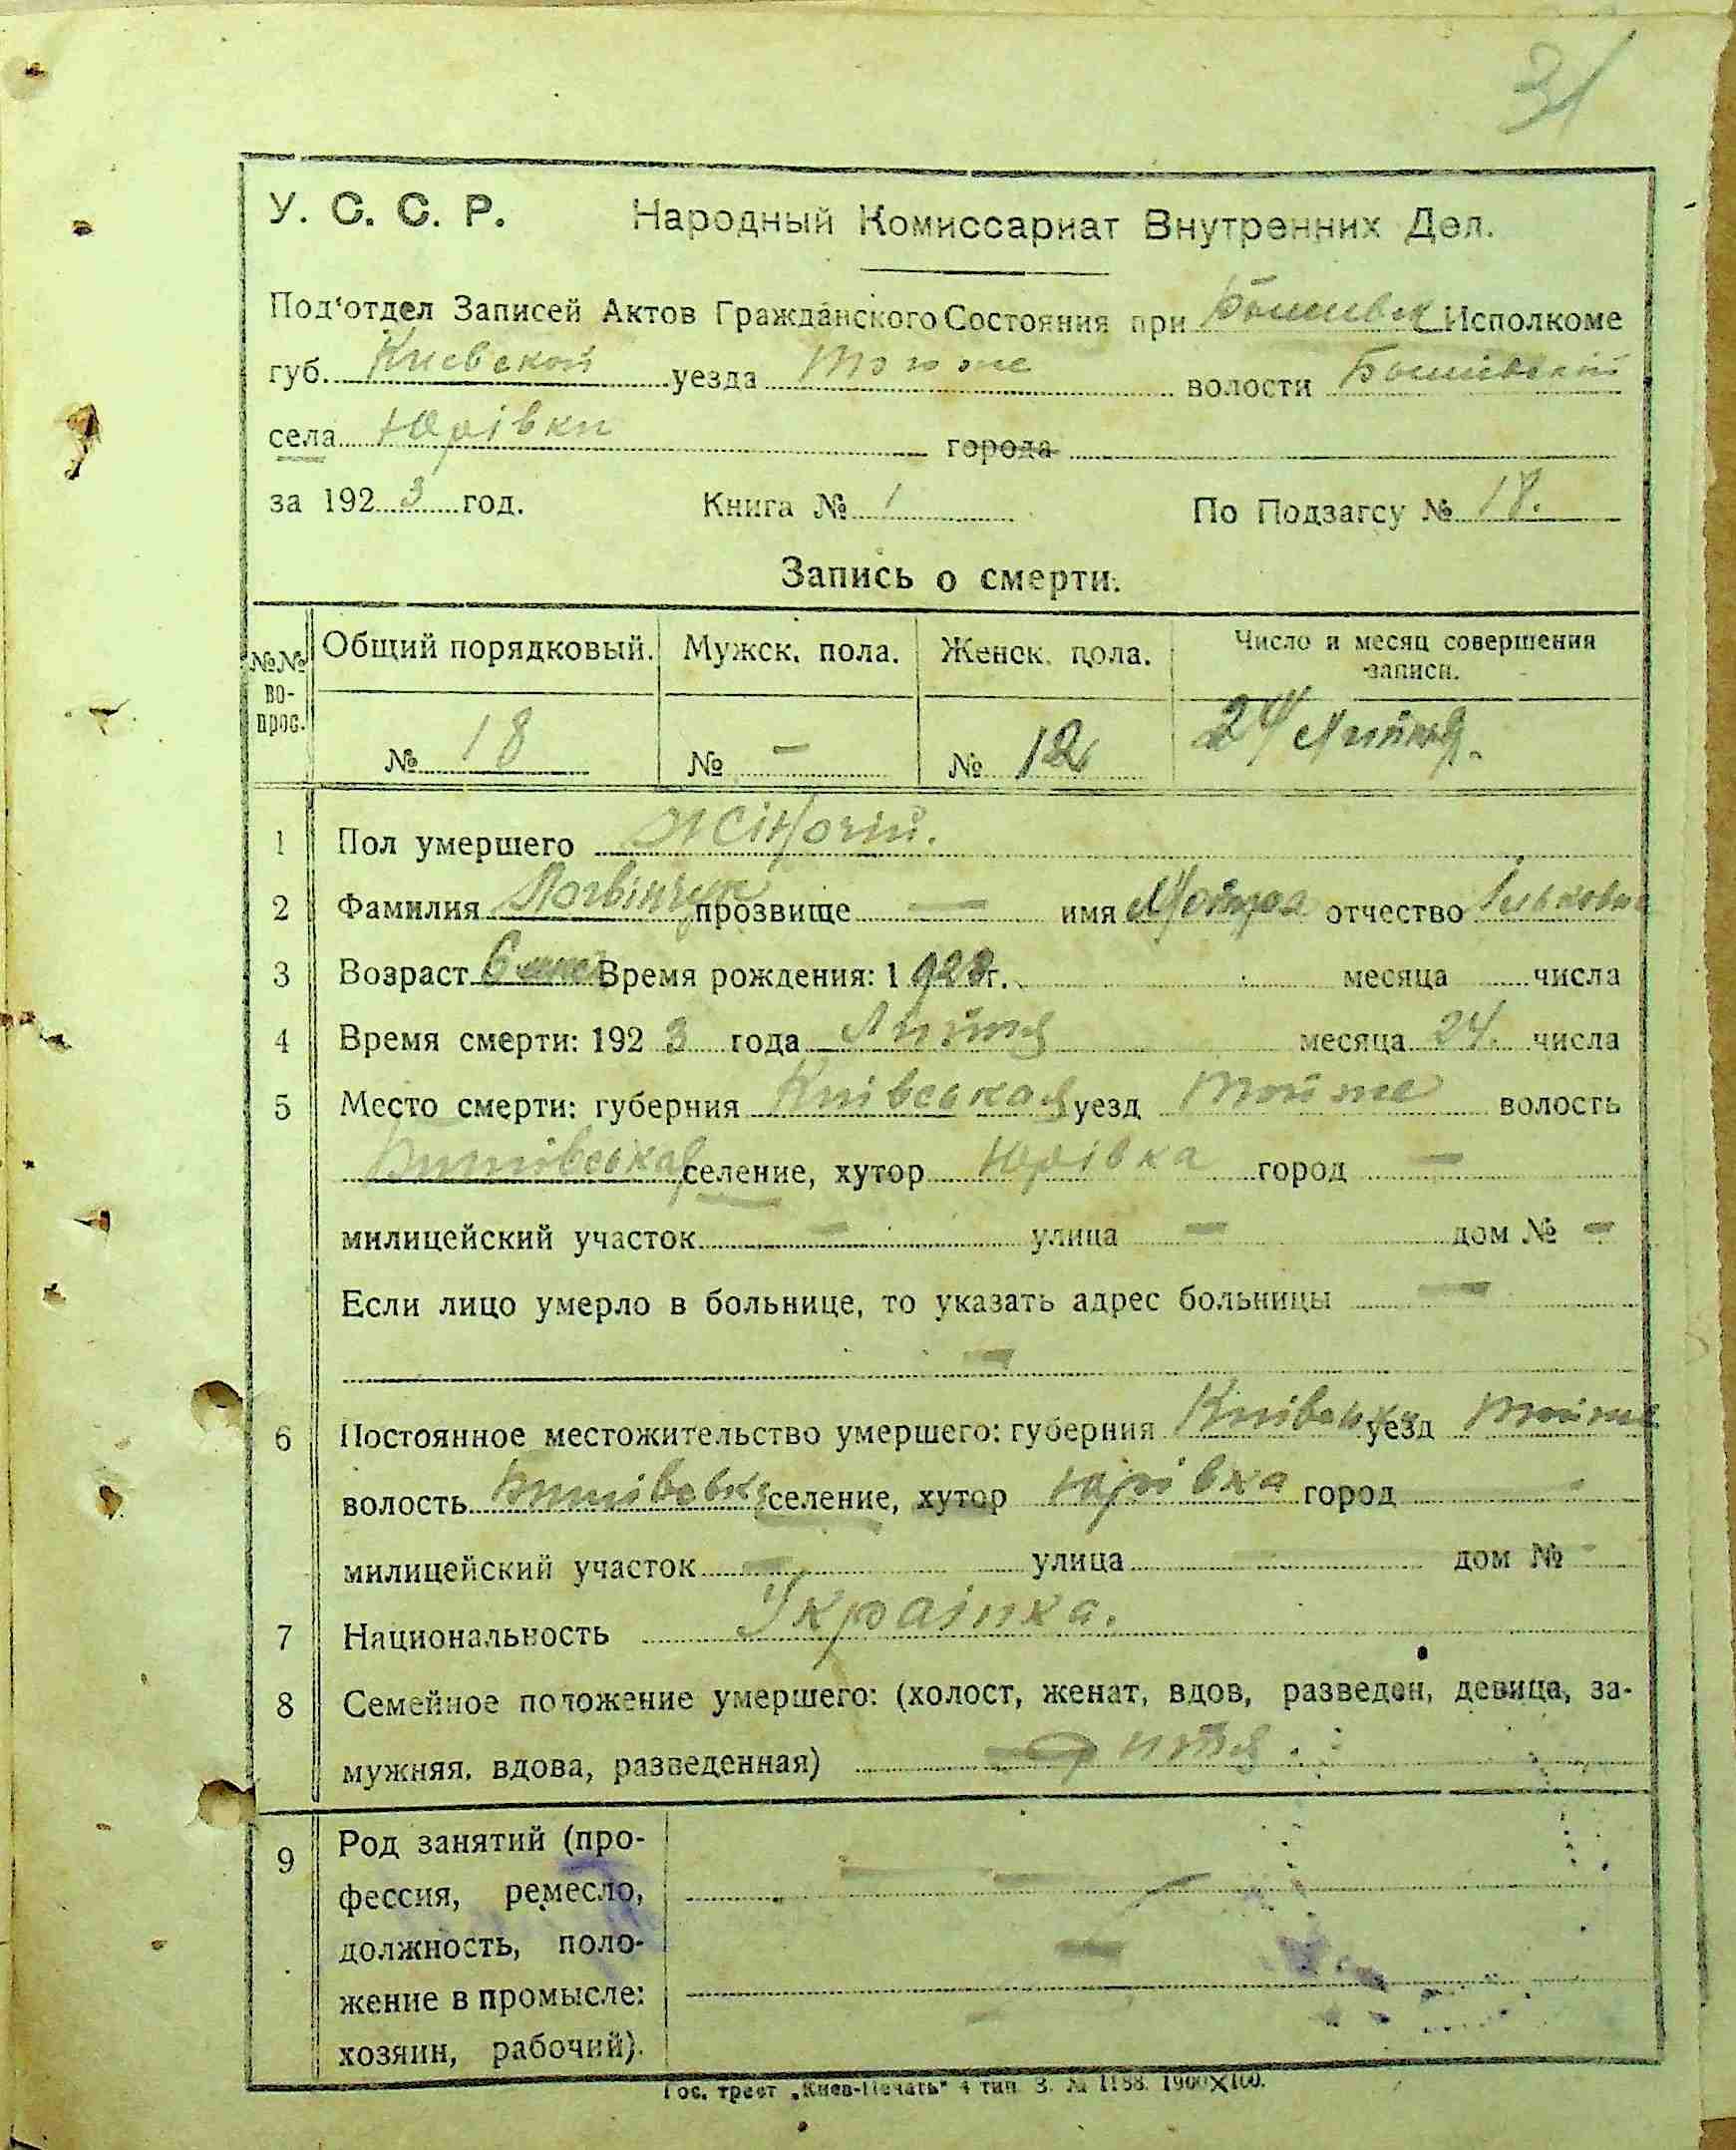 31
У. С. С. Р. Народный Комиссариат Внутренних Дел.
Под'отдел Записей Актов Гражданского Состояния при Исполкоме
губ. Киевской уезда того же волости Бышівской
села Юрівки города
за 1923 год. Книга № 1 По Подзагсу № 18.
Запись о смерти.
№№ во-прос. Общий порядковый. Мужск. пола. Женск. пола. Число и месяц совершения записи.
№ 18 № — № 12 24 Липня.
1 Пол умершего жіночий.
2 Фамилия Логвінчук прозвище — имя Мотря отчество
3 Возраст 6 Время рождения: 1923 г. месяца числа
4 Время смерти: 1923 года Липня месяца 24. числа
5 Место смерти: губерния Київська уезд той же волость
селение, хутор Юрівка город —
милицейский участок — улица — дом № —
Если лицо умерло в больнице, то указать адрес больницы —
—
6 Постоянное местожительство умершего: губерния Київська уезд той же
волость селение, хутор Юрівка город
милицейский участок — улица дом № -
7 Национальность Украінка.
8 Семейное положение умершего: (холост, женат, вдов, разведен, девица, за-
мужняя, вдова, разведенная) дитя.
9 Род занятий (про-
фессия, ремесло, —
должность, поло- —
жение в промысле:
хозяин, рабочий).
Гос. трест „Киев-Печать" 4 тип. З. № 1188. 1900X100.